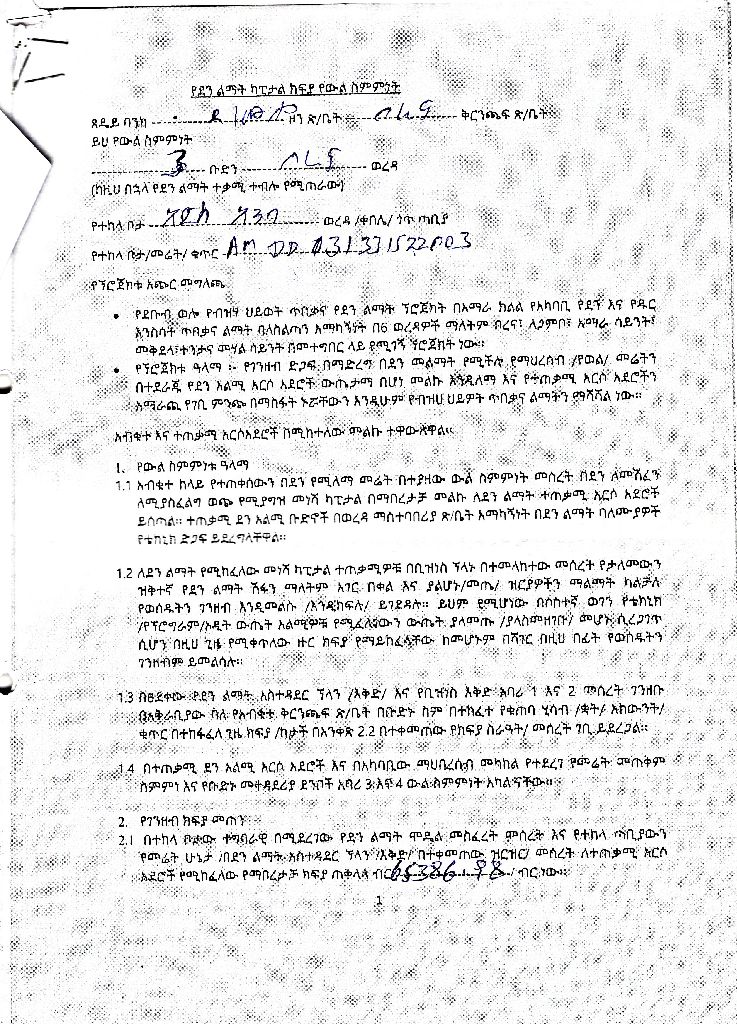 የደን ልማት ካፒታል ክፍያ የውል ስምምነት
ጸዴይ ባንክ ዞን ጽ/ቤት ቦረና ቅርንጫፍ ጽ/ቤት
ይህ የውል ስምምነት
3 ቡድን ቦረና ወረዳ
(ከዚህ በኋላ የደን ልማት ተቃሚ ተብሎ የሚጠራው)
የተከላ ቦታ ወረዳ /ቀበሌ/ ጎጥ ጣቢያ
የተከላ ቦታ/መሬት/ ቁጥር AM DD 031331522003
የፕሮጀክቱ አጭር መግለጫ
• የደቡብ ወሎ የብዝሃ ህይወት ጥበቃና የደን ልማት ፕሮጀክት በአማራ ክልል የአካባቢ የደን እና የዱር
እንስሳት ጥበቃና ልማት ባለስልጣን አማካኝነት በ6 ወረዳዎች ማለትም ቦረና፣ ለጋምቦ፣ አማራ ሳይንት፣
መቅደላ፣ተንታና መሃል ሳይንት በመተግበር ላይ የሚገኝ ፕሮጀክት ነው።
• የፕሮጀክቱ ዓላማ ፡- የገንዘብ ድጋፍ በማድረግ በደን መልማት የሚችሉ የማህረሰብ /የወል/ መሬትን
በተደራጁ የደን አልሚ አርሶ አደሮች ውጤታማ በሆነ መልኩ እንዲለማ እና የተጠቃሚ አርሶ አደሮችን
አማራጪ የገቢ ምንጭ በማስፋት ኑሯቸውን እንዲሁም የብዝሀ ህይዎት ጥበቃና ልማትን ማሻሻል ነው።
አብቁተ እና ተጠቃሚ አርሶአደሮች በሚከተለው መልኩ ተዋውለዋል።
1. የውል ስምምነቱ ዓላማ
1.1 አብቁተ ከላይ የተጠቀሰውን በደን የሚለማ መሬት በተያዘው ውል ስምምነት መሰረት በደን ለመሸፈን
ለሚያስፈልግ ወጭ የሚያግዝ መነሻ ካፒታል በማበረታቻ መልኩ ለደን ልማት ተጠቃሚ አርሶ አደሮች
ይሰጣል። ተጠቃሚ ደን አልሚ ቡድኖች በወረዳ ማስተባበሪያ ጽ/ቤት አማካኝነት በደን ልማት ባለሙያዎች
የቴክኒክ ድጋፍ ይደረግላቸዋል።
1.2 ለደን ልማት የሚከፈለው መነሻ ካፒታል ተጠቃሚዎቹ በቢዝነስ ፕላኑ በተመላከተው መሰረት የታለመውን
ዝቅተኛ የደን ልማት ሽፋን ማለትም አገር በቀል እና ያልሆኑ/መጤ/ ዝርያዎችን ማልማት ካልቻሉ
የወሰዱትን ገንዘብ እንዲመልሱ /እንዲከፍሉ/ ይገደዳሉ። ይህም የሚሆነው በሶስተኛ ወገን የቴክኒክ
/የፕሮግራም/ኦዲት ውጤት አልሚዎቹ የሚፈለገውን ውጤት ያለመጡ /ያላስመዘገቡ/ መሆኑ ሲረጋገጥ
ሲሆን በዚህ ጊዜ የሚቀጥለው ዙር ክፍያ የማይከፈላቸው ከመሆኑም በሻገር በዚህ በፊት የወሰዱትን
ገንዘብም ይመልሳሉ።
1.3 በፀደቀው የደን ልማት አስተዳደር ፕላን /እቅድ/ እና የቢዝነስ እቅድ አባሪ 1 እና 2 መሰረት ገንዘቡ
በአቅራቢያው ባለ የአብቁተ ቅርንጫፍ ጽ/ቤት በቡድኑ ስም በተከፈተ የቁጠባ ሂሳብ /ቋት/ አካውንት/
ቁጥር በተከፋፈለ ጊዜ ክፍያ /ከታች በአንቀጽ 2.2 በተቀመጠው የክፍያ ስራዓት/ መሰረት ገቢ ይደረጋል።
1.4 በተጠቃሚ ደን አልሚ አርሶ አደሮች እና በአካባቢው ማህበረሰብ መካከል የተደረገ የመሬት መጠቀም
ስምምነ እና የቡድኑ መተዳደሪያ ደንቦች አባሪ 3 እና 4 ውል ስምምነት አካል ናቸው።
2. የገንዘብ ክፍያ መጠን
2.1 በተከላ ቦታው ተግባራዊ በሚደረገው የደን ልማት ሞዴል መስፈረት ምሰረት እና የተከላ ጣቢያውን
የመሬት ሁኔታ /በደን ልማት አስተዳደር ፕላን /እቅድ/ በተቀመጠው ዝርዝር/ መሰረት ለተጠቃሚ አርሶ
አደሮች የሚከፈለው የማበረታቻ ክፍያ ጠቅላላ ብር 65386.98 / ብር ነው።
1